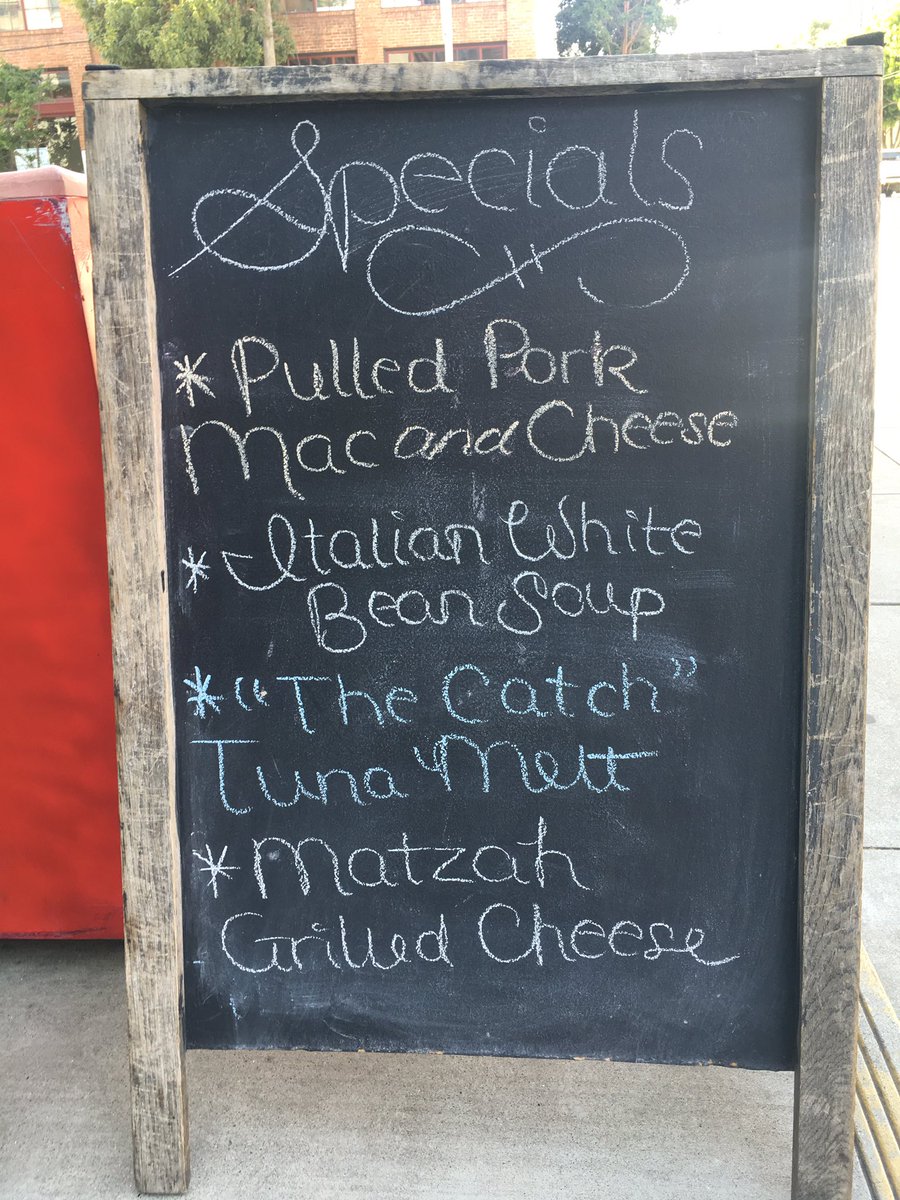 Specials
* Pulled Pork
Mac and Cheese
* Italian White
Bean Soup
* "The Catch"
Tuna Melt
* Matzah
Grilled Cheese